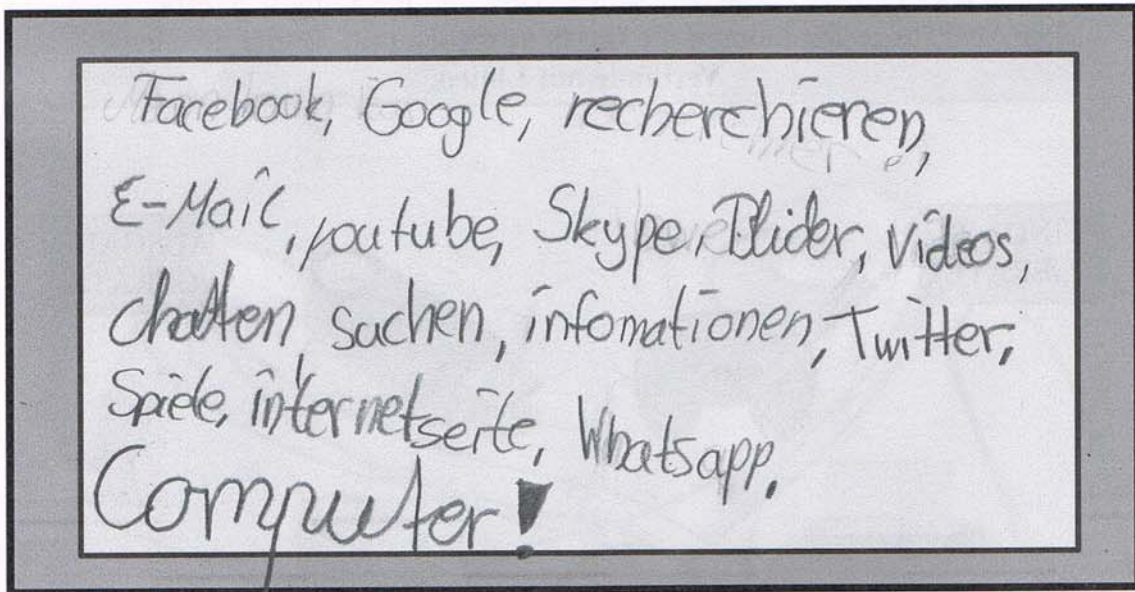 Facebook, Google, recherchieren,
E-Mail, youtube, Skype, Blider, Videos,
chatten, suchen, infomationen, Twitter,
Spiele, internetseite, Whatsapp,
Computer!